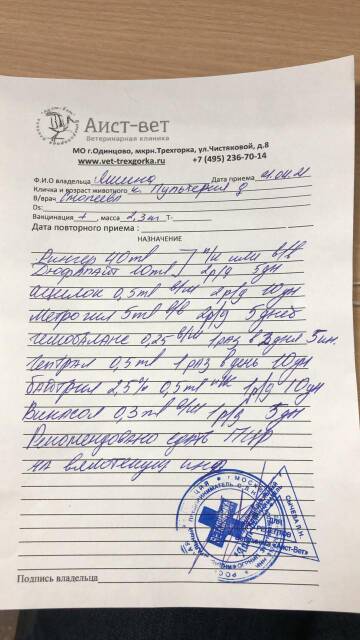 Аист-вет
Ветеринарная клиника
МО г.Одинцово, мкрн.Трехгорка, ул.Чистяковой, д.8
www.vet-trexgorka.ru +7 (495) 236-70-14
Ф.И.О владельца Яшина Дата приема
Кличка и возраст животного к. Пульхерия
В/врач
Ds:
Вакцинация + , масса 2,3 кг Т-
Дата повторного приема :
НАЗНАЧЕНИЕ
Рингер 40 ml п/к или в/в
Дюфалайт 10 ml 2 р/д 5 дн
0,5 ml в/м 2 р/д 10 дн
Метрогил 5 ml в/в 2 р/д 5 дней
Гемобаланс 0,25 в/м 1 раз в 2 дня 5 ин.
Гептрал 0,5 ml 1 раз в день 10 дн
Байтрил 2,5% 0,5 ml п/к 1 р/д 10 дн
Викасол 0,3 ml в/м 1 р/д 5 дн
Рекомендовано сдать ПЦР
на вялотекущ. инф.
Подпись владельца